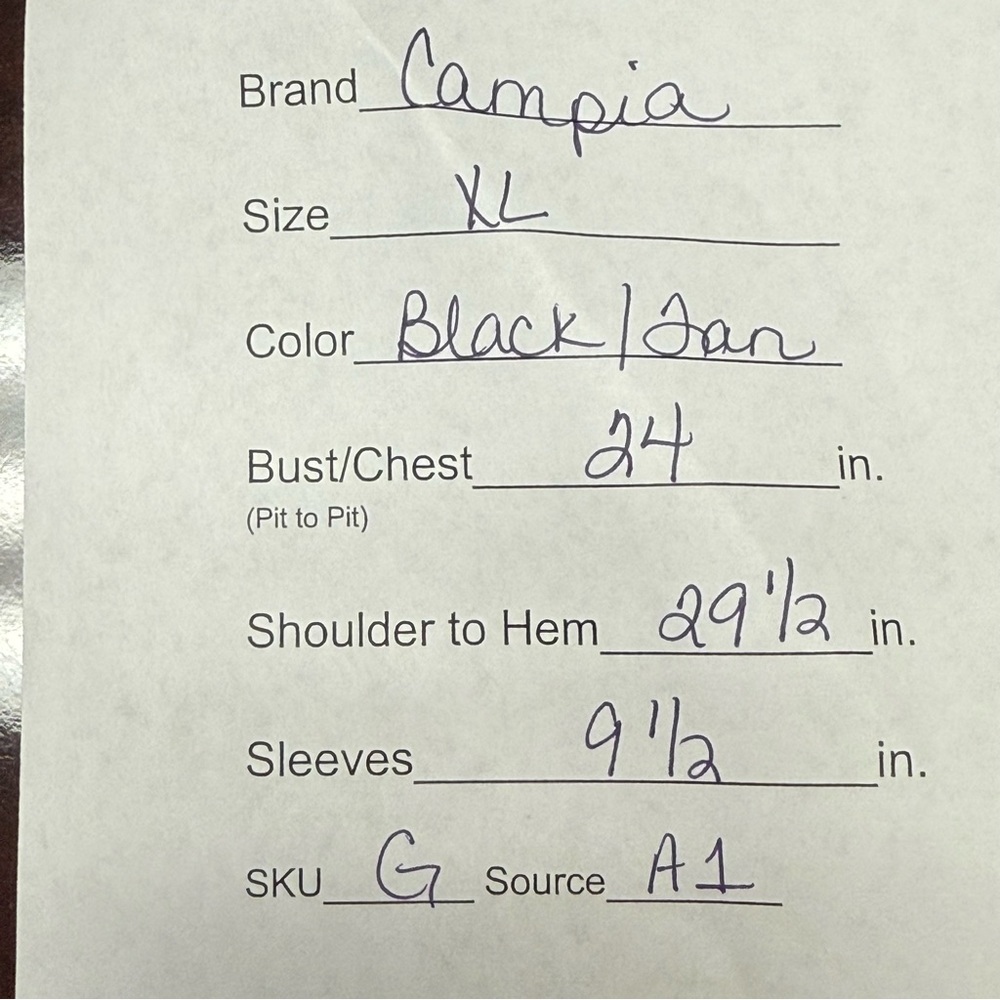 Brand Campia
Size XL
Color Black/Tan
Bust/Chest 24 in.
(Pit to Pit)
Shoulder to Hem 29 1/2 in.
Sleeves 9 1/2 in.
SKU G Source A1